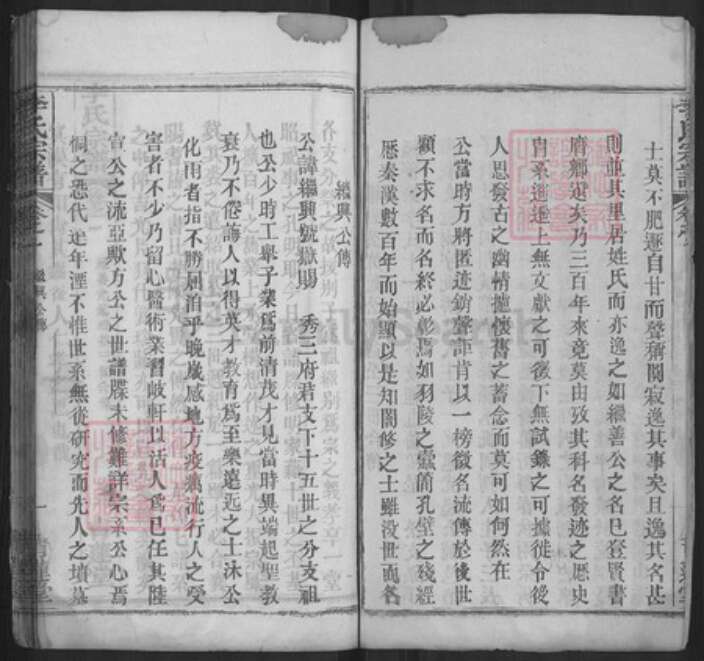 士莫不肥遯自甘而聲稱閴寂逸其事矣且逸其名甚
則並其里居姓氏而亦逸之如繼善公之名已登賢書
府鄉選矣乃三百年來竟莫由攷其科名發跡之歷史
上無文獻之可徵下無試錄之可據徒令後
人思發古之幽情攄懷舊之蓄念而莫可如何然在
公當時方將匿迹銷聲詎肯以一榜徵名流傳於後世
顧不求名而名終必彰焉如羽陵之蠹簡孔壁之殘經
歷秦漢數百年而始顯以是知闇修之士雖没世而名
繼興公傳
公諱繼興號嶽賜 秀三府君支下十五世之分支祖
也公少時工舉子業爲前清茂才見當時異端起聖教
衰乃不倦誨人以得英才教育爲至樂遠近之士沐公
化雨者指不勝屈洎乎晚歲感地方疫癘流行人之受
害者不少乃留心醫術業習岐軒以活人爲已任其陸
宣公之流亞歟方公之世譜牒未修難詳宗系公心焉
恫之恐代遠年湮不惟世系無從研究而先人之墳墓
李氏宗譜
卷之一
繼興公傳
一